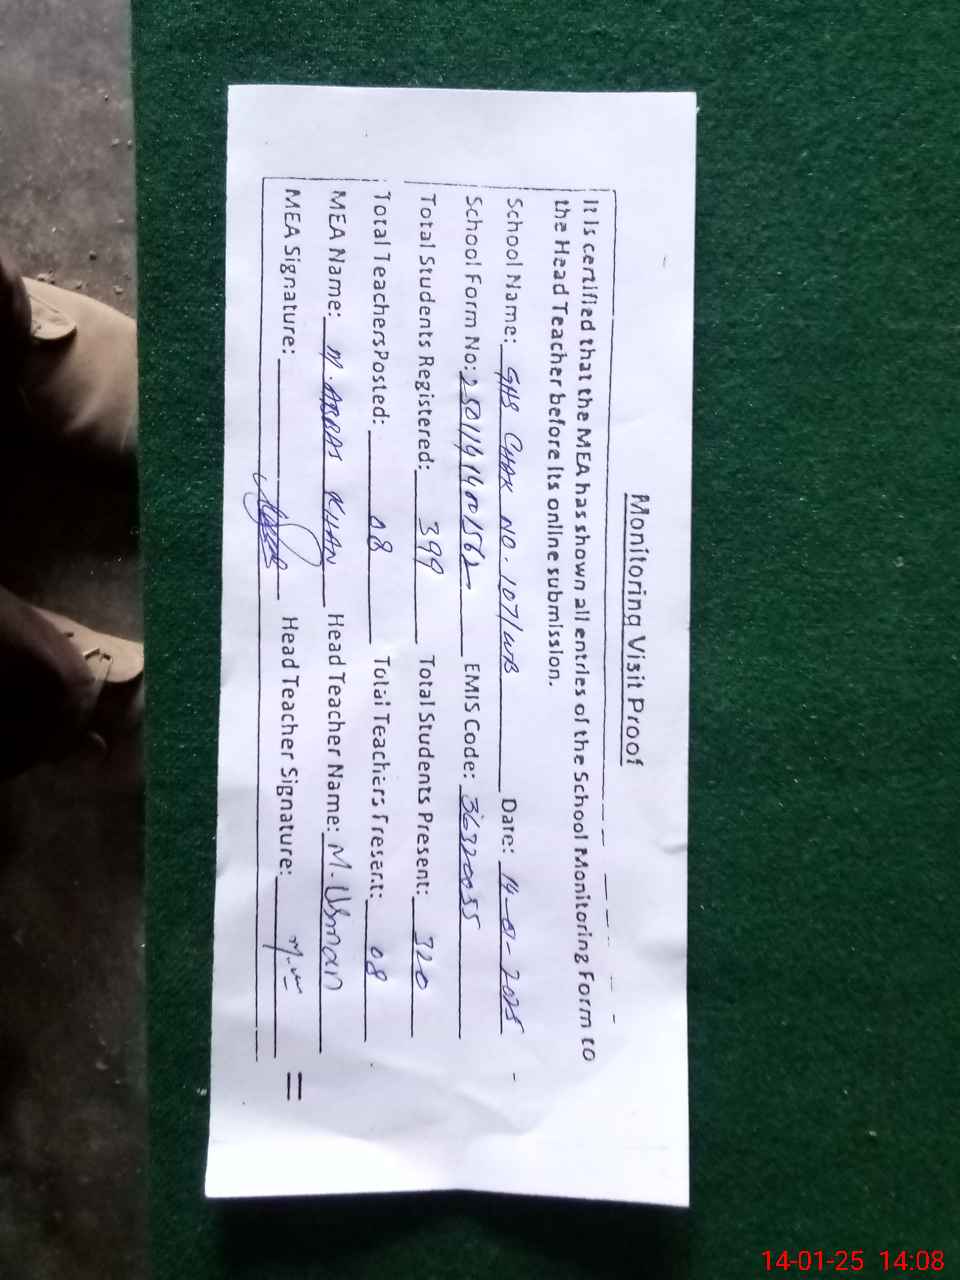 Monitoring Visit Proof
It is certified that the MEA has shown all entries of the School Monitoring Form to
the Head Teacher before its online submission.
School Name: GHS CHAK NO. 107/WB Date: 14-01-2025
School Form No: EMIS Code: 36320055
Total Students Registered: 399 Total Students Present: 320
Total Teachers Posted: 08 Total Teachers Present: 08
MEA Name: M. ABBAS KHAN Head Teacher Name: M. Usman
MEA Signature: Head Teacher Signature:
14-01-25 14:08